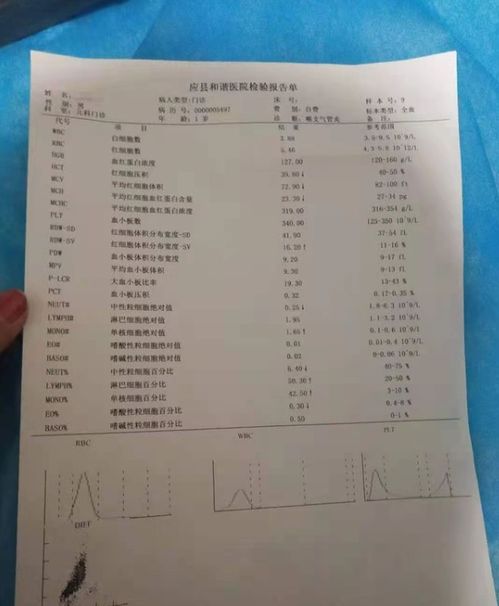 应县和谐医院检验报告单
姓 名:
病人类型:门诊 床 号: 样 本 号:9
性 别: 男 病 历 号: 0000005497 费 别: 自费 标本类型: 全血
科 室: 儿科门诊 年 龄: 1 岁 诊 断: 喉支气管炎 备 注:
代号 项 目 结 果 参考范围
WBC 白细胞数 3.88 3.5-9.5 10^9/L
RBC 红细胞数 5.46 4.3-5.8 10^12/L
HGB 血红蛋白浓度 127.00 120-160 g/L
HCT 红细胞压积 39.80↓ 40-50 %
MCV 平均红细胞体积 72.90↓ 82-100 fl
MCH 平均红细胞血红蛋白含量 23.30↓ 27-34 pg
MCHC 平均红细胞血红蛋白浓度 319.00 316-354 g/L
PLT 血小板数 340.00 125-350 10^9/L
RDW-SD 红细胞体积分布宽度-SD 41.90 37-54 fl
RDW-SV 红细胞体积分布宽度-SV 16.20↑ 11-16 %
PDW 血小板体积分布宽度 9.20 9-17 fl
MPV 平均血小板体积 9.30 9-13 fl
P-LCR 大血小板比率 19.30 13-43 %
PCT 血小板压积 0.32 0.17-0.35 %
NEUT# 中性粒细胞绝对值 0.25↓ 1.8-6.3 10^9/L
LYMPH# 淋巴细胞绝对值 1.95 1.1-3.2 10^9/L
MONO# 单核细胞绝对值 1.65↑ 0.1-0.6 10^9/L
EO# 嗜酸性粒细胞绝对值 0.01 0.01-0.4 10^9/L
BASO# 嗜碱性粒细胞绝对值 0.02 0-0.06 10^9/L
NEUT% 中性粒细胞百分比 6.40↓ 40-75 %
LYMPH% 淋巴细胞百分比 50.30↑ 20-50 %
MONO% 单核细胞百分比 42.50↑ 3-10 %
EO% 嗜酸性粒细胞百分比 0.30↓ 0.4-8 %
BASO% 嗜碱性粒细胞百分比 0.50 0-1 %
RBC WBC PLT
DIFF